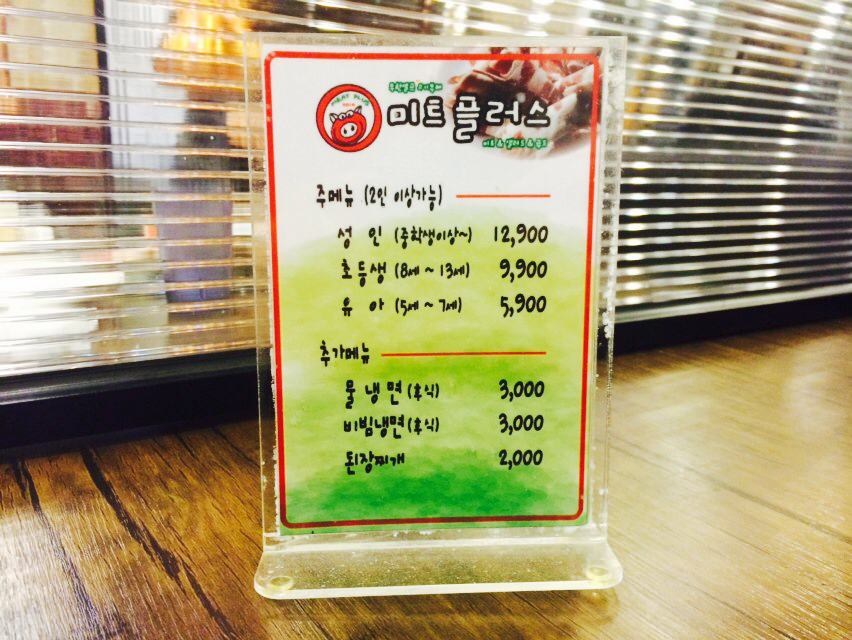 MEAT PLUS
미트플러스
주메뉴 (2인 이상가능)
성 인 (중학생이상~) 12,900
초등생 (8세 ~ 13세) 9,900
유 아 (5세 ~ 7세) 5,900
추가메뉴
물냉면 (후식) 3,000
비빔냉면 (후식) 3,000
된장찌개 2,000